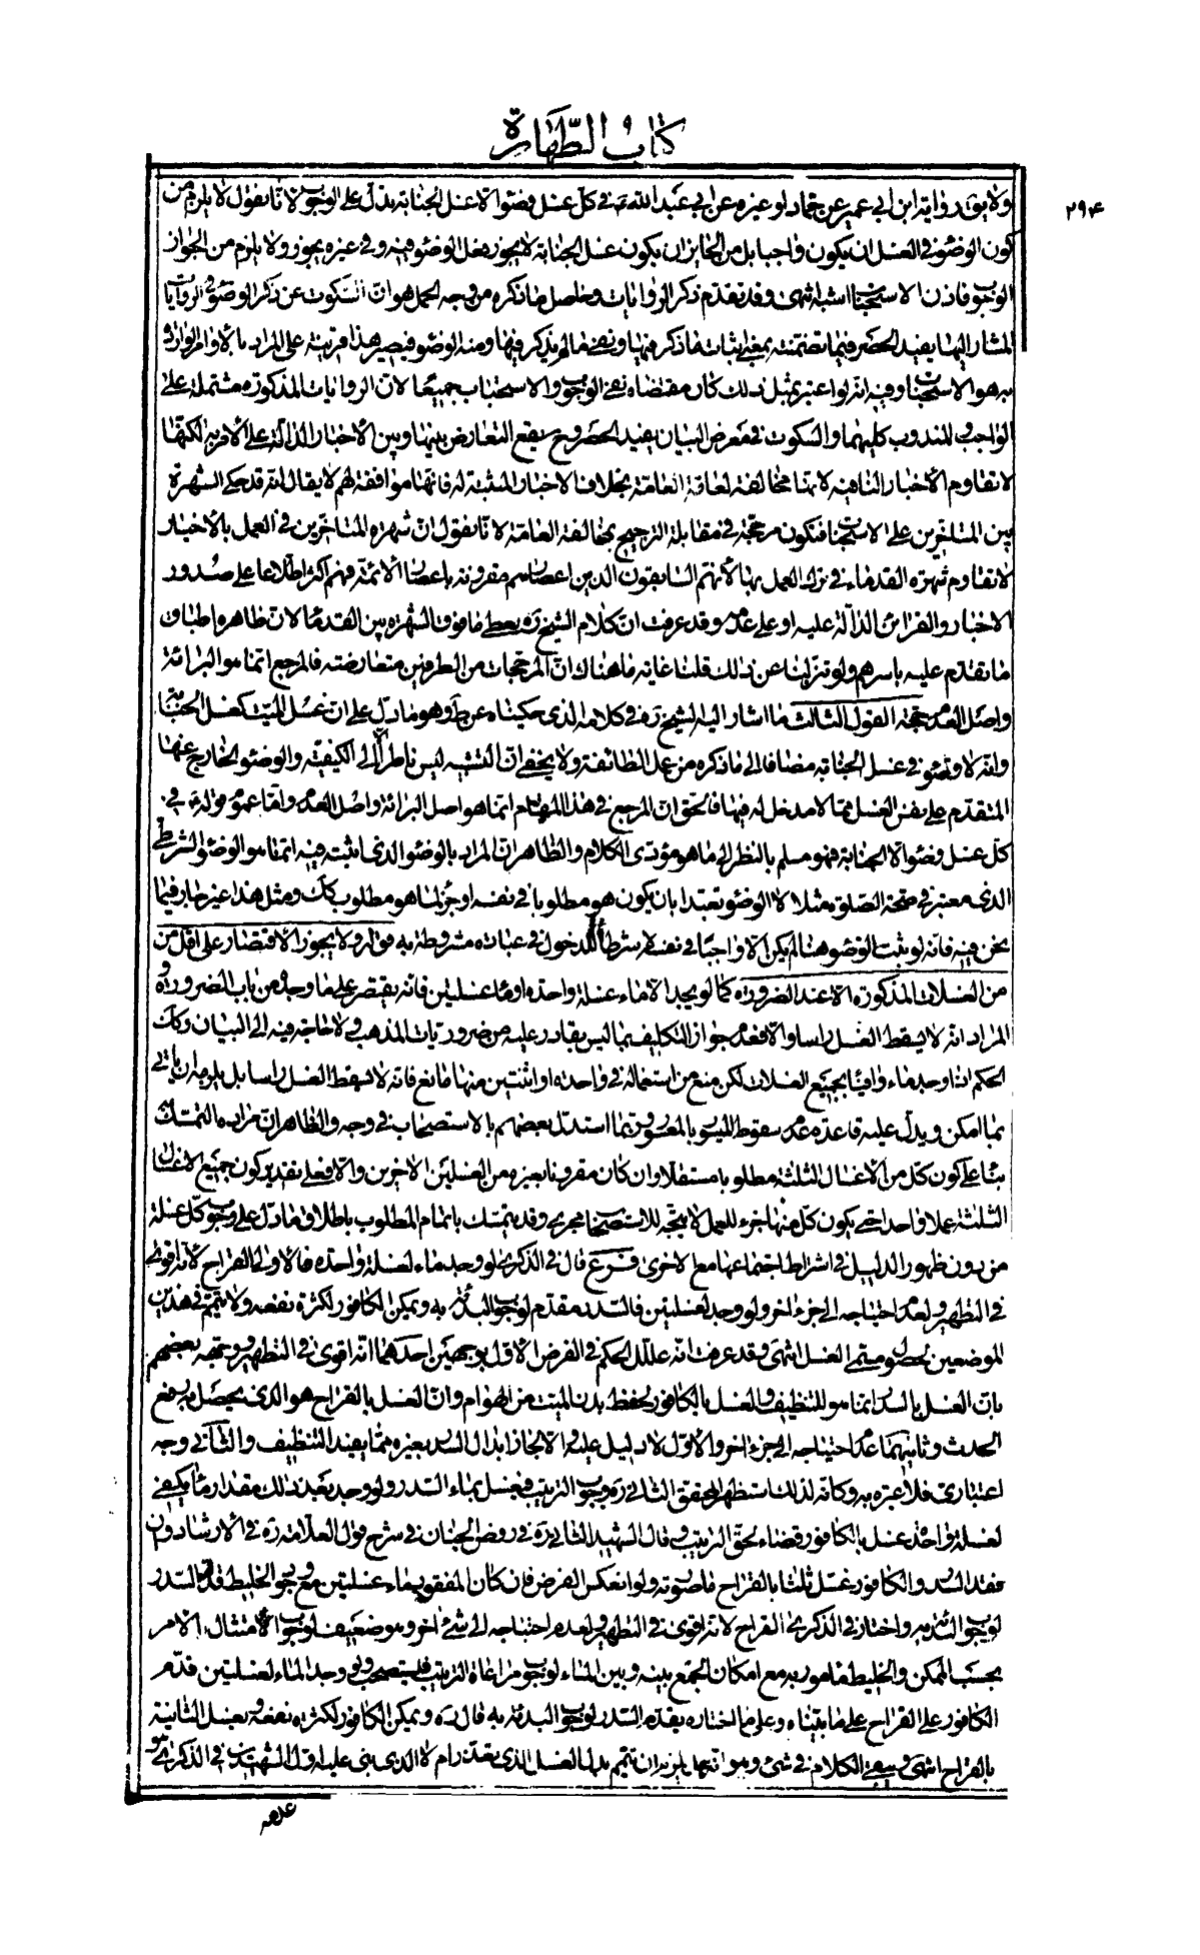 كتاب الطهارة
٢٩٤
ولا يؤيد رواية ابن ابي عمير عن حماد او غيره عن ابي عبد الله ع في كل غسل وضوء الا غسل الجنابة يدل على الوجوب لانا نقول لا يلزم من
كون الوضوء في الغسل ان يكون واجبا بل من الجايز ان يكون غسل الجنابة لا يجوز فعل الوضوء فيه وفي غيره يجوز ولا يلزم من الجواز
الوجوب فاذن الاستحباب اشبه انتهى وقد تقدم ذكر الروايات وحاصل ما ذكره من وجه الحمل هو ان السكوت عن ذكر الوضوء في الروايات
المشار اليها يفيد الحصر فيما تضمنته بمعنى اثبات ما ذكر فيها ونفى ما لم يذكر فيها ومنه الوضوء فيصير هذا قرينة على ان المراد بالاوامر الواردة
به هو الاستحباب وفيه انه لو اعتبر بمثل ذلك كان مقتضاه نفى الوجوب والاستحباب جميعا لان الروايات المذكورة مشتملة على
الواجب والمندوب كليهما والسكوت في معرض البيان يفيد الحصر وح يقع التعارض بينها وبين الاخبار الدالة على الامر به لكنها
لا تقاوم الاخبار النافية لانها مخالفة لعامة العامة بخلاف الاخبار المثبتة له فانها موافقة لهم لا يقال انه قد حكى الشهرة
بين المتاخرين على الاستحباب فتكون مرجحة في مقابلة الترجيح بمخالفة العامة لانا نقول ان شهرة المتاخرين في العمل بالاخبار
لا تقاوم شهرة القدماء في ترك العمل بها لانهم السابقون الذين اعصارهم مقرونة باعصار الائمة فهم اكثر اطلاعا على صدور
الاخبار والقرائن الدالة عليه او على عدمه وقد عرفت ان كلام الشيخ ره يعطى ما فوق الشهرة بين القدماء لان ظاهره اطباق
من تقدم عليه باسرهم ولو تنزلنا عن ذلك قلنا غاية ما هناك ان المرجحات من الطرفين متعارضة فالمرجع انما هو البرائة
واصل العدم حجة القول الثالث ما اشار اليه الشيخ ره في كلامه الذي حكيناه عن ط وهو ما دل على ان غسل الميت كغسل الجنابة
وانه لا وضوء في غسل الجنابة مضافا الى ما ذكره من عمل الطائفة ولا يخفى ان التشبيه ليس ناظرا الا الى الكيفية والوضوء الخارج عنها
المتقدم على نفس الغسل مما لا مدخل له فيها فالحق ان المرجع في هذا المقام انما هو اصل البرائة واصل العدم واما عموم قوله ع في
كل غسل وضوء الا الجنابة فهو مسلم بالنظر الى ما هو مؤدى الكلام والظاهر ان المراد بالوضوء الذي اثبته فيه انما هو الوضوء الشرطى
الذي معتبر في صحة الصلوة مثلا لا الوضوء تعبدا بان يكون هو مطلوبا في نفسه او جزء لما هو مطلوب كك ومثل هذا غير جار فيما
نحن فيه فانه لو ثبت الوضوء هنا لم يكن الا واجبا في نفسه لا شرطا للدخول في عبادة مشروطة به قوله ولا يجوز الاقتصار على اقل من
من الغسلات المذكورة الا عند الضرورة كما لو لم يجد الا ماء غسلة واحدة او ماء غسلتين فانه يقتصر على ما وجده من باب الضرورة و
المراد انه لا يسقط الغسل راسا والا فعدم جواز التكليف بما ليس بقادر عليه من ضروريات المذهب ولا حاجة فيه الى البيان وكك
الحكم اذا وجد ماء وافيا بجميع الغسلات لكن منع من استعماله في واحدة او اثنتين منها مانع فانه لا يسقط الغسل راسا بل يلزمه ان ياتى
بما امكن ويدل عليه قاعدة عدم سقوط الميسور بالمعسور وربما استدل بعضهم بالاستصحاب في وجه والظاهر ان مراده التمسك
بناء على كون كل من الاغسال الثلثة مطلوبا مستقلا وان كان مقرونا بغيره من الغسلين الاخرين والا فعلى تقدير كون جميع الاغسال
الثلثة عملا واحدا حتى يكون كل منها جزء للعمل لا يتجه للاستصحاب مجرى وقد يتمسك باتمام المطلوب باطلاق ما دل على وجوب كل غسلة
من دون ظهور الدليل في اشتراط اجتماعها مع الاخرى فرع قال في الذكرى لو وجد ماء لغسلة واحدة فالاولى القراح لانه اقوى
في التطهير ولعدم احتياجه الى جزء اخر ولو وجد لغسلتين فالسدر مقدم لوجوب البدئة به ويمكن الكافور لكثرة نفعه ولا يتمم في هذين
الموضعين لحصول مسمى الغسل انتهى وقد عرفت انه علل الحكم في الفرض الاول بوجهين احدهما انه اقوى في التطهير ووجهه بعضهم
بان الغسل بالسدر انما هو للتنظيف والغسل بالكافور لحفظ بدن الميت من الهوام وان الغسل بالقراح هو الذي يحصل به رفع
الحدث وثانيهما عدم احتياجه الى جزء اخر والاول لا دليل عليه والا لجاز ابدال السدر بغيره مما يفيد التنظيف والثانى وجه
اعتبارى فلا عبرة به وكانه لذلك استظهر المحقق الثاني ره وجوب الترتيب فيغسل بماء السدر ولو وجد بعد ذلك مقدار ما يكفى
لغسلة واحدة غسل بالكافور قضاء لحق الترتيب وقال الشهيد الثاني ره في روض الجنان في شرح قول العلامة ره في الارشاد وان
فقد السدر والكافور غسل ثلثا بالقراح ما صورته ولو انعكس الفرض فان كان المفقود ماء غسلتين مع وجود الخليط قدم السدر
لوجوب البدئة به واختار في الذكرى القراح لانه اقوى في التطهير ولعدم احتياجه الى شئ اخر وهو ضعيف لوجوب الامتثال الامر
بحسب الممكن والخليط مامور به مع امكان الجمع بينه وبين الماء لوجوب مراعاة الترتيب فليستصحب ولو وجد الماء لغسلتين قدم
الكافور على القراح على ما بيناه وعلى ما اختاره يقدم السدر لوجوب البدئة به قال ره ويمكن الكافور لكثرة نفعه ويغسل الثانية
بالقراح انتهى وبقى الكلام في شئ وهو انه هل يلزم ان تتمم بدل الغسل الذي تعذر ام لا الذي بنى عليه اول الشهيدين في الذكرى هو